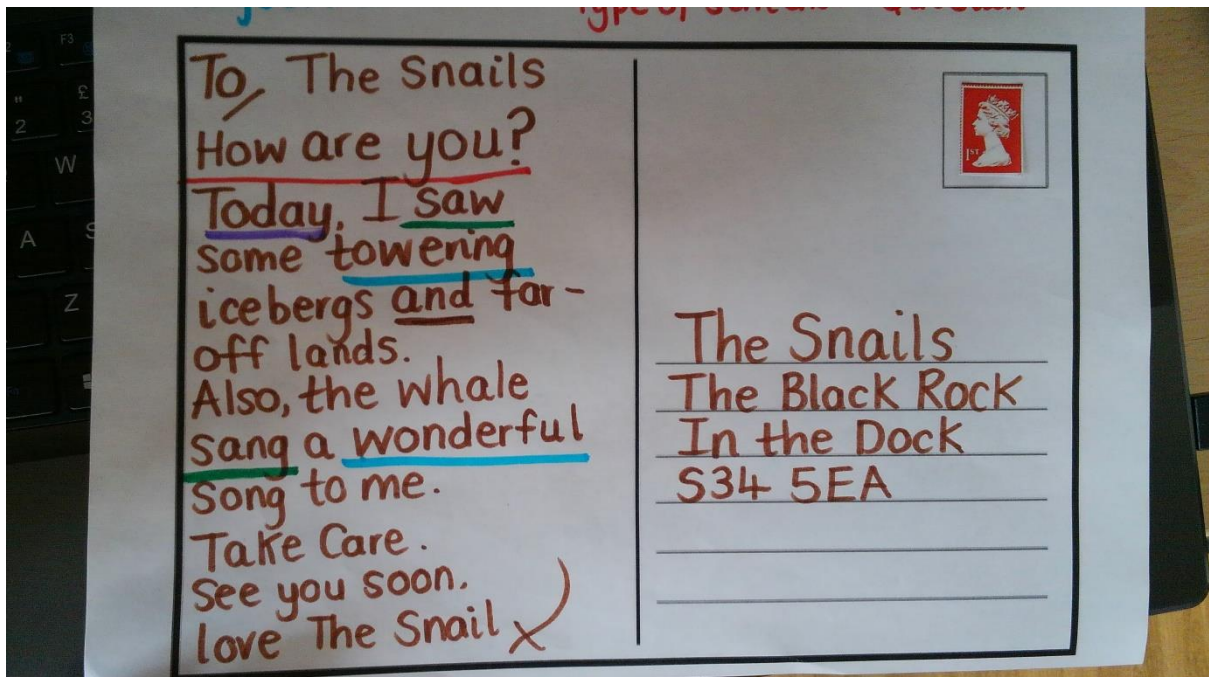 Type of Sentence - Question
To, The Snails
How are you?
Today, I saw
some towering
icebergs and far-
off lands.
Also, the whale
sang a wonderful
song to me.
Take Care.
See you soon.
love The Snail x
1ST
The Snails
The Black Rock
In the Dock
S34 5EA
F3
"
2
£
3
W
A
S
Z